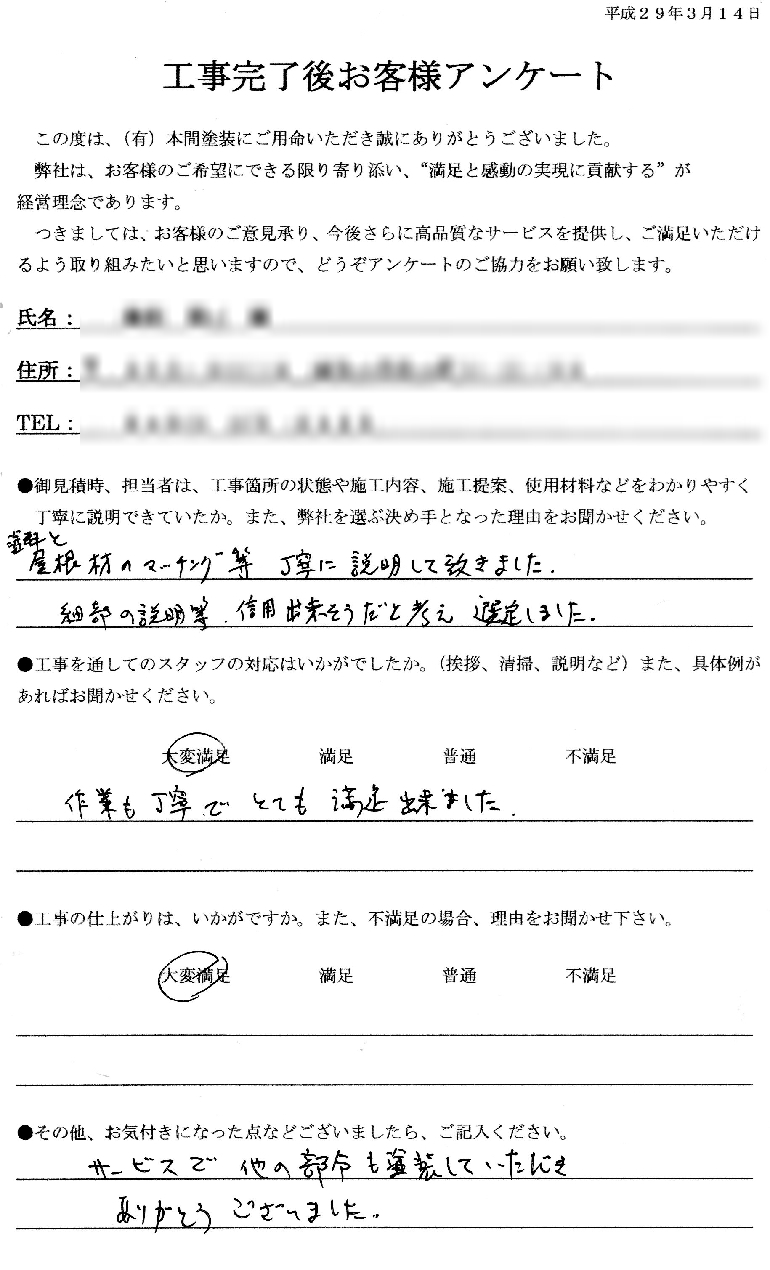 平成29年3月14日
工事完了後お客様アンケート
この度は、(有)本間塗装にご用命いただき誠にありがとうございました。
弊社は、お客様のご希望にできる限り寄り添い、“満足と感動の実現に貢献する”が
経営理念であります。
つきましては、お客様のご意見承り、今後さらに高品質なサービスを提供し、ご満足いただけ
るよう取り組みたいと思いますので、どうぞアンケートのご協力をお願い致します。
氏名:
住所:
TEL:
●御見積時、担当者は、工事箇所の状態や施工内容、施工提案、使用材料などをわかりやすく
丁寧に説明できていたか。また、弊社を選ぶ決め手となった理由をお聞かせください。
塗料と
屋根材のマッチング等 丁寧に説明して頂きました.
細部の説明等. 信用出来そうだと考え 選定しました.
●工事を通してのスタッフの対応はいかがでしたか。(挨拶、清掃、説明など)また、具体例が
あればお聞かせください。
大変満足 満足 普通 不満足
作業も丁寧で とても 満足出来ました.
●工事の仕上がりは、いかがですか。また、不満足の場合、理由をお聞かせ下さい。
大変満足 満足 普通 不満足
●その他、お気付きになった点などございましたら、ご記入ください。
サービスで 他の部分も塗装していただき
ありがとう ございました.